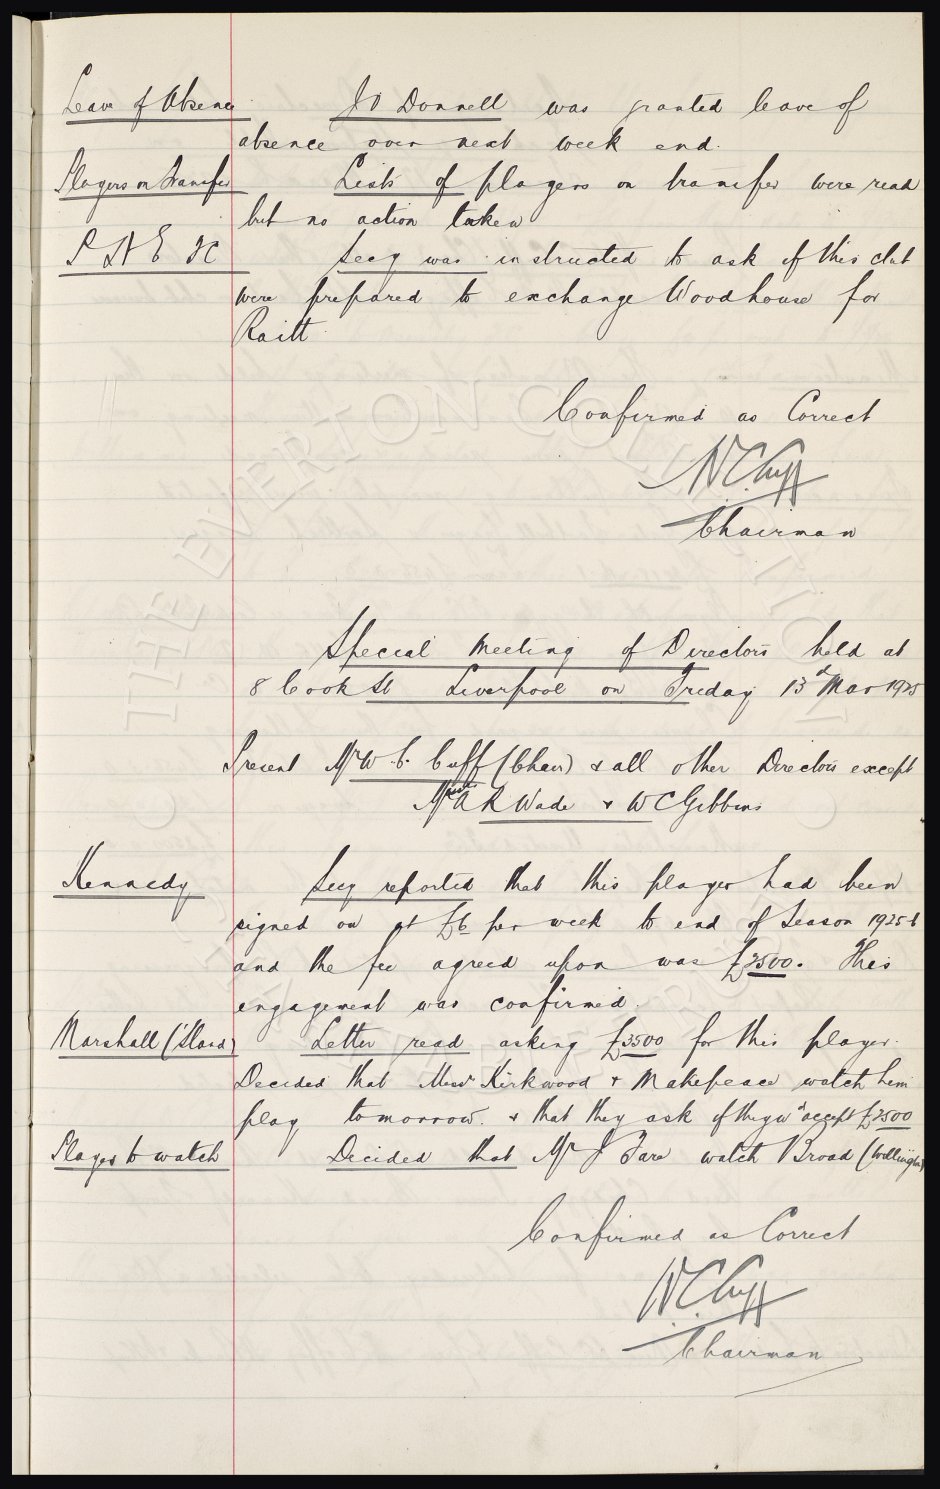 Leave of Absence J O Donnell was granted leave of
absence over next week end.
Players on Transfer Lists of players on transfer were read
but no action taken
P N E FC Secy was instructed to ask if this club
were prepared to exchange Woodhouse for
Raitt.
Confirmed as Correct
W.C. Cuff
Chairman
Special Meeting of Directors held at
8 Cook St Liverpool on Friday 13th Mar 1925
Present Mr W. C. Cuff (Chair) & all other Directors except
A R Wade & W C Gibbins
Kennedy Secy reported that this player had been
signed on at £6 per week to end of Season 1925-6
and the fee agreed upon was £3500. This
engagement was confirmed.
Marshall (S'land) Letter read asking £3500 for this player.
Decided that Messrs Kirkwood & Makepeace watch him
play tomorrow. & that they ask if they wd accept £2500
Players to watch Decided that Mr J Fare watch Broad (
Confirmed as Correct
W.C. Cuff
Chairman
THE EVERTON COLLECTION